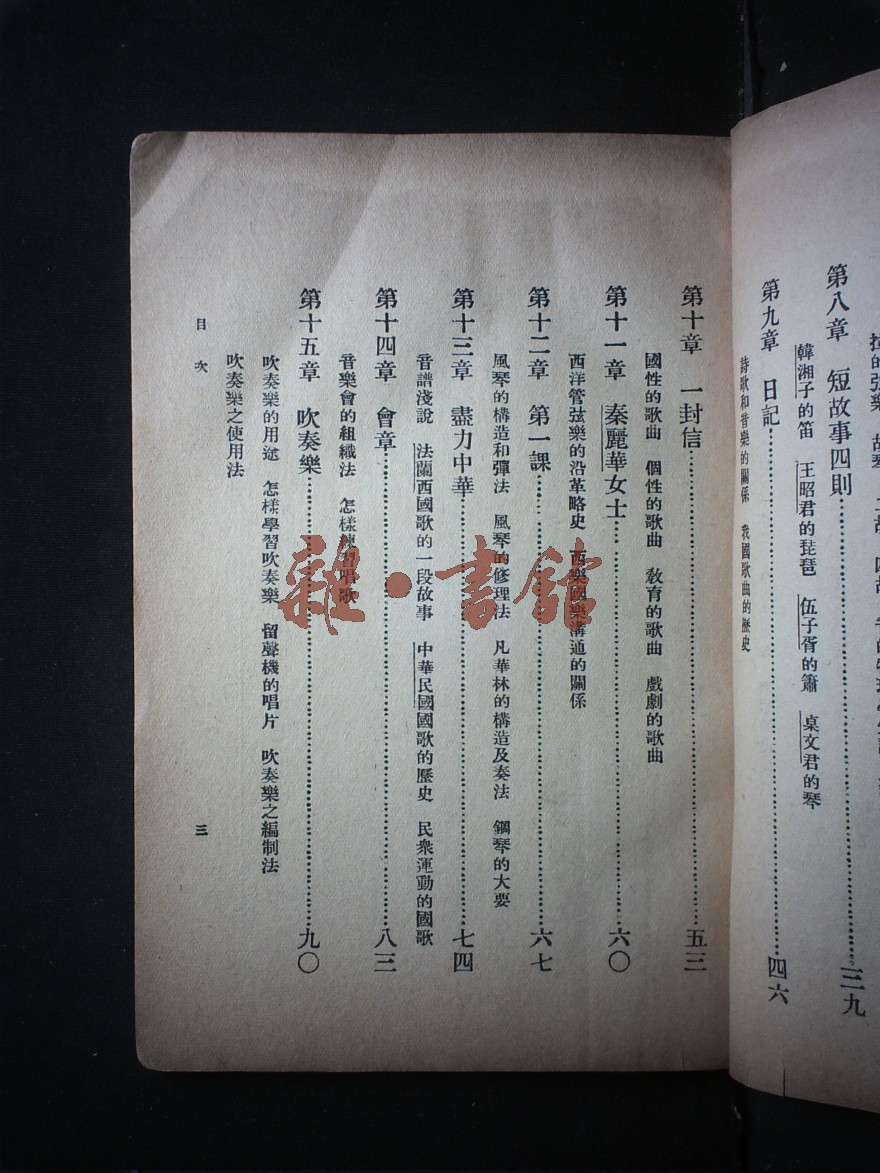 第八章　短故事四則……三九
韓湘子的笛　王昭君的琵琶　伍子胥的簫　桌文君的琴
第九章　日記……四六
詩歌和音樂的關係　我國歌曲的歷史
第十章　一封信……五三
國性的歌曲　個性的歌曲　教育的歌曲　戲劇的歌曲
第十一章　秦麗華女士……六〇
西洋管弦樂的沿革略史　西樂國樂溝通的關係
第十二章　第一課……六七
風琴的構造和彈法　風琴的修理法　凡華林的構造及奏法　鋼琴的大要
第十三章　盡力中華……七四
音譜淺說　法蘭西國歌的一段故事　中華民國國歌的歷史　民衆運動的國歌
第十四章　會章……八三
音樂會的組織法　怎樣練習唱歌
第十五章　吹奏樂……九〇
吹奏樂的用途　怎樣學習吹奏樂　留聲機的唱片　吹奏樂之編制法
吹奏樂之使用法
目次
三
雜·書館